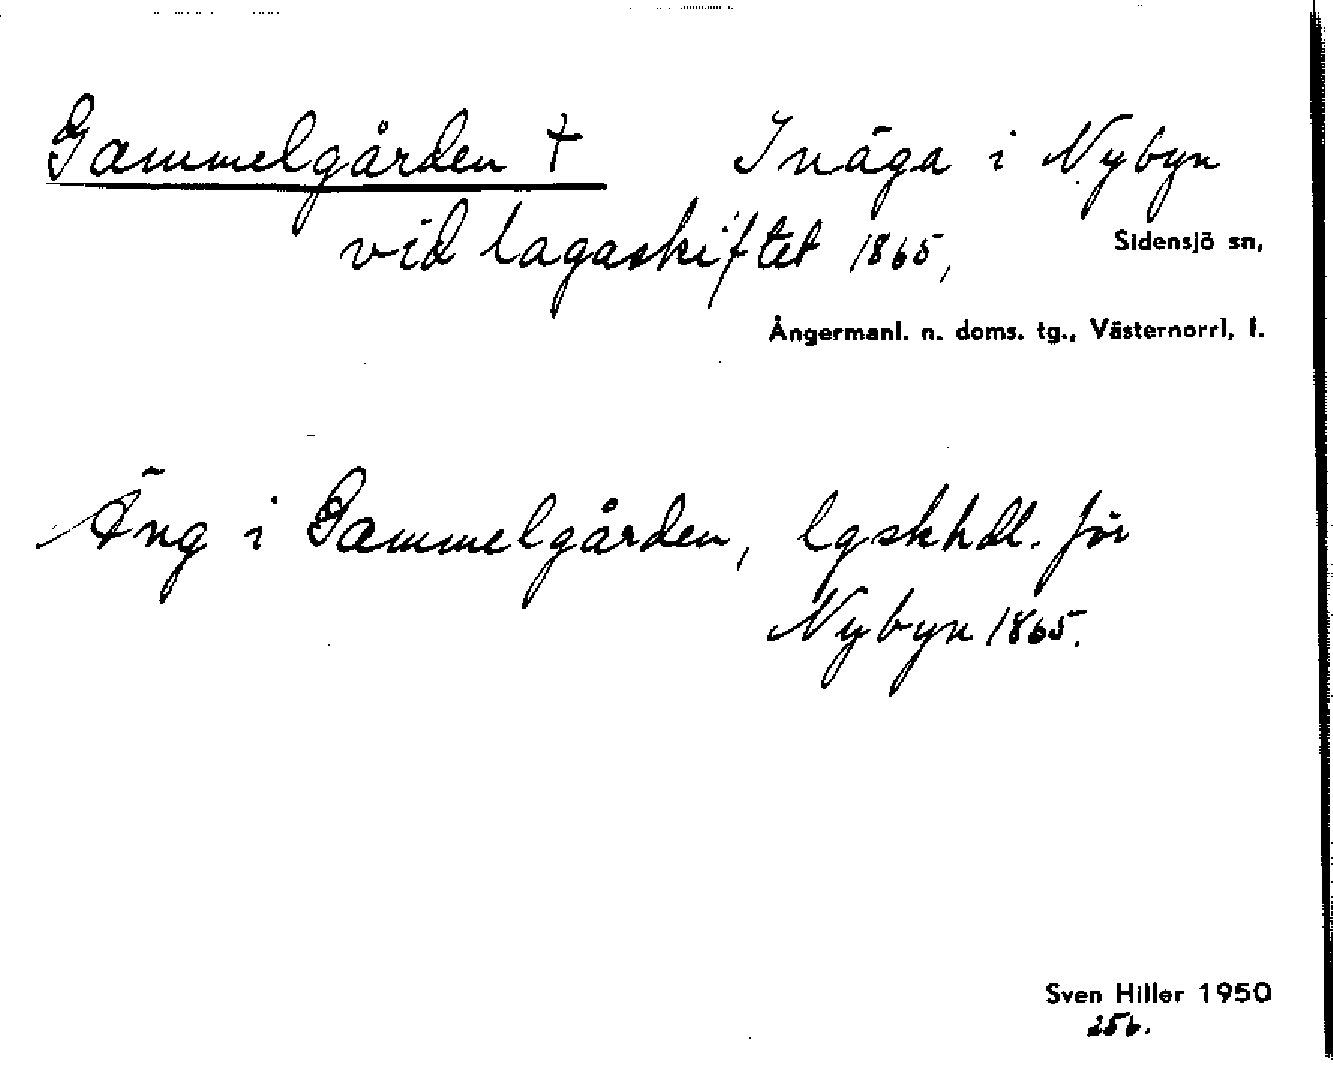 Gammelgården † Inäga i Nybyn
vid lagaskiftet 1865,
Sidensjö sn,
Ångermanl. n. doms. tg., Västernorrl. l.
Äng i Gammelgården, lgskhdl. för
Nybyn 1865.
Sven Hiller 1950
256.